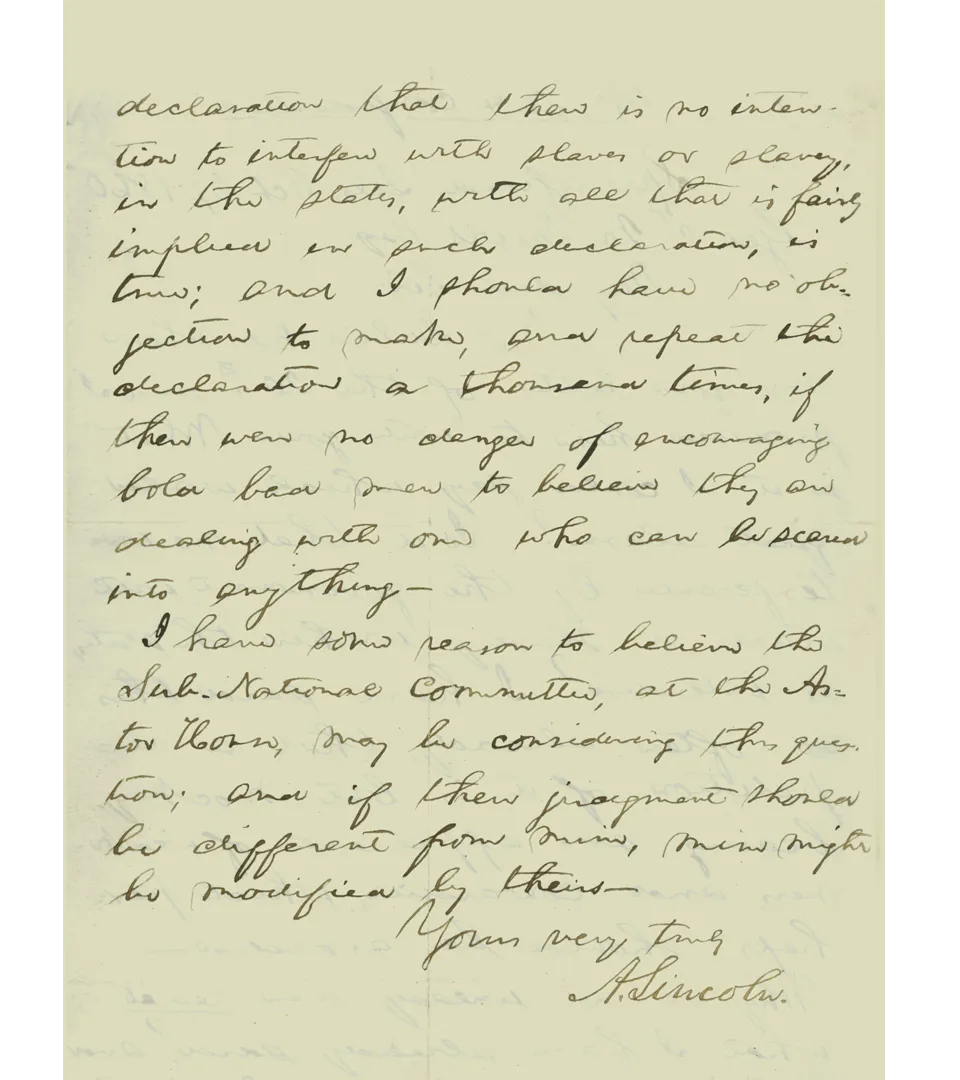 declaration that there is no inten-
tion to interfere with slaves or slavery,
in the states, with all that is fairly
implied in such declaration, is
true; and I should have no ob-
jection to make, and repeat the
declaration a thousand times, if
there were no danger of encouraging
bold bad men to believe they are
dealing with one who can be scared
into anything—
I have some reason to believe the
Sub-National Committee, at the As=
tor House, may be considering this ques-
tion; and if their judgment should
be different from mine, mine might
be modified by theirs—
Yours very truly
A. Lincoln.